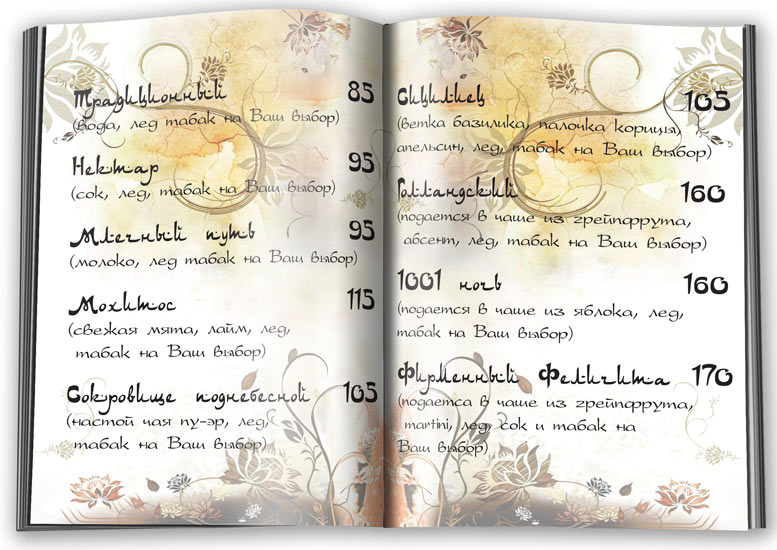 Традиционный 85
(вода, лед табак на Ваш выбор)
Нектар 95
(сок, лед, табак на Ваш выбор)
Млечный путь 95
(молоко, лед табак на Ваш выбор)
Мохитос 115
(свежая мята, лайм, лед,
табак на Ваш выбор)
Сокровище поднебесной 105
(настой чая пу-эр, лед,
табак на Ваш выбор)
Сицилиец 105
(ветка базилика, палочка корицы,
апельсин, лед, табак на Ваш выбор)
Голландский 160
(подается в чаше из грейпфрута,
абсент, лед, табак на Ваш выбор)
1001 ночь 160
(подается в чаше из яблока, лед,
табак на Ваш выбор)
Фирменный Феличита 170
(подается в чаше из грейпфрута,
martini, лед, сок и табак на
Ваш выбор)